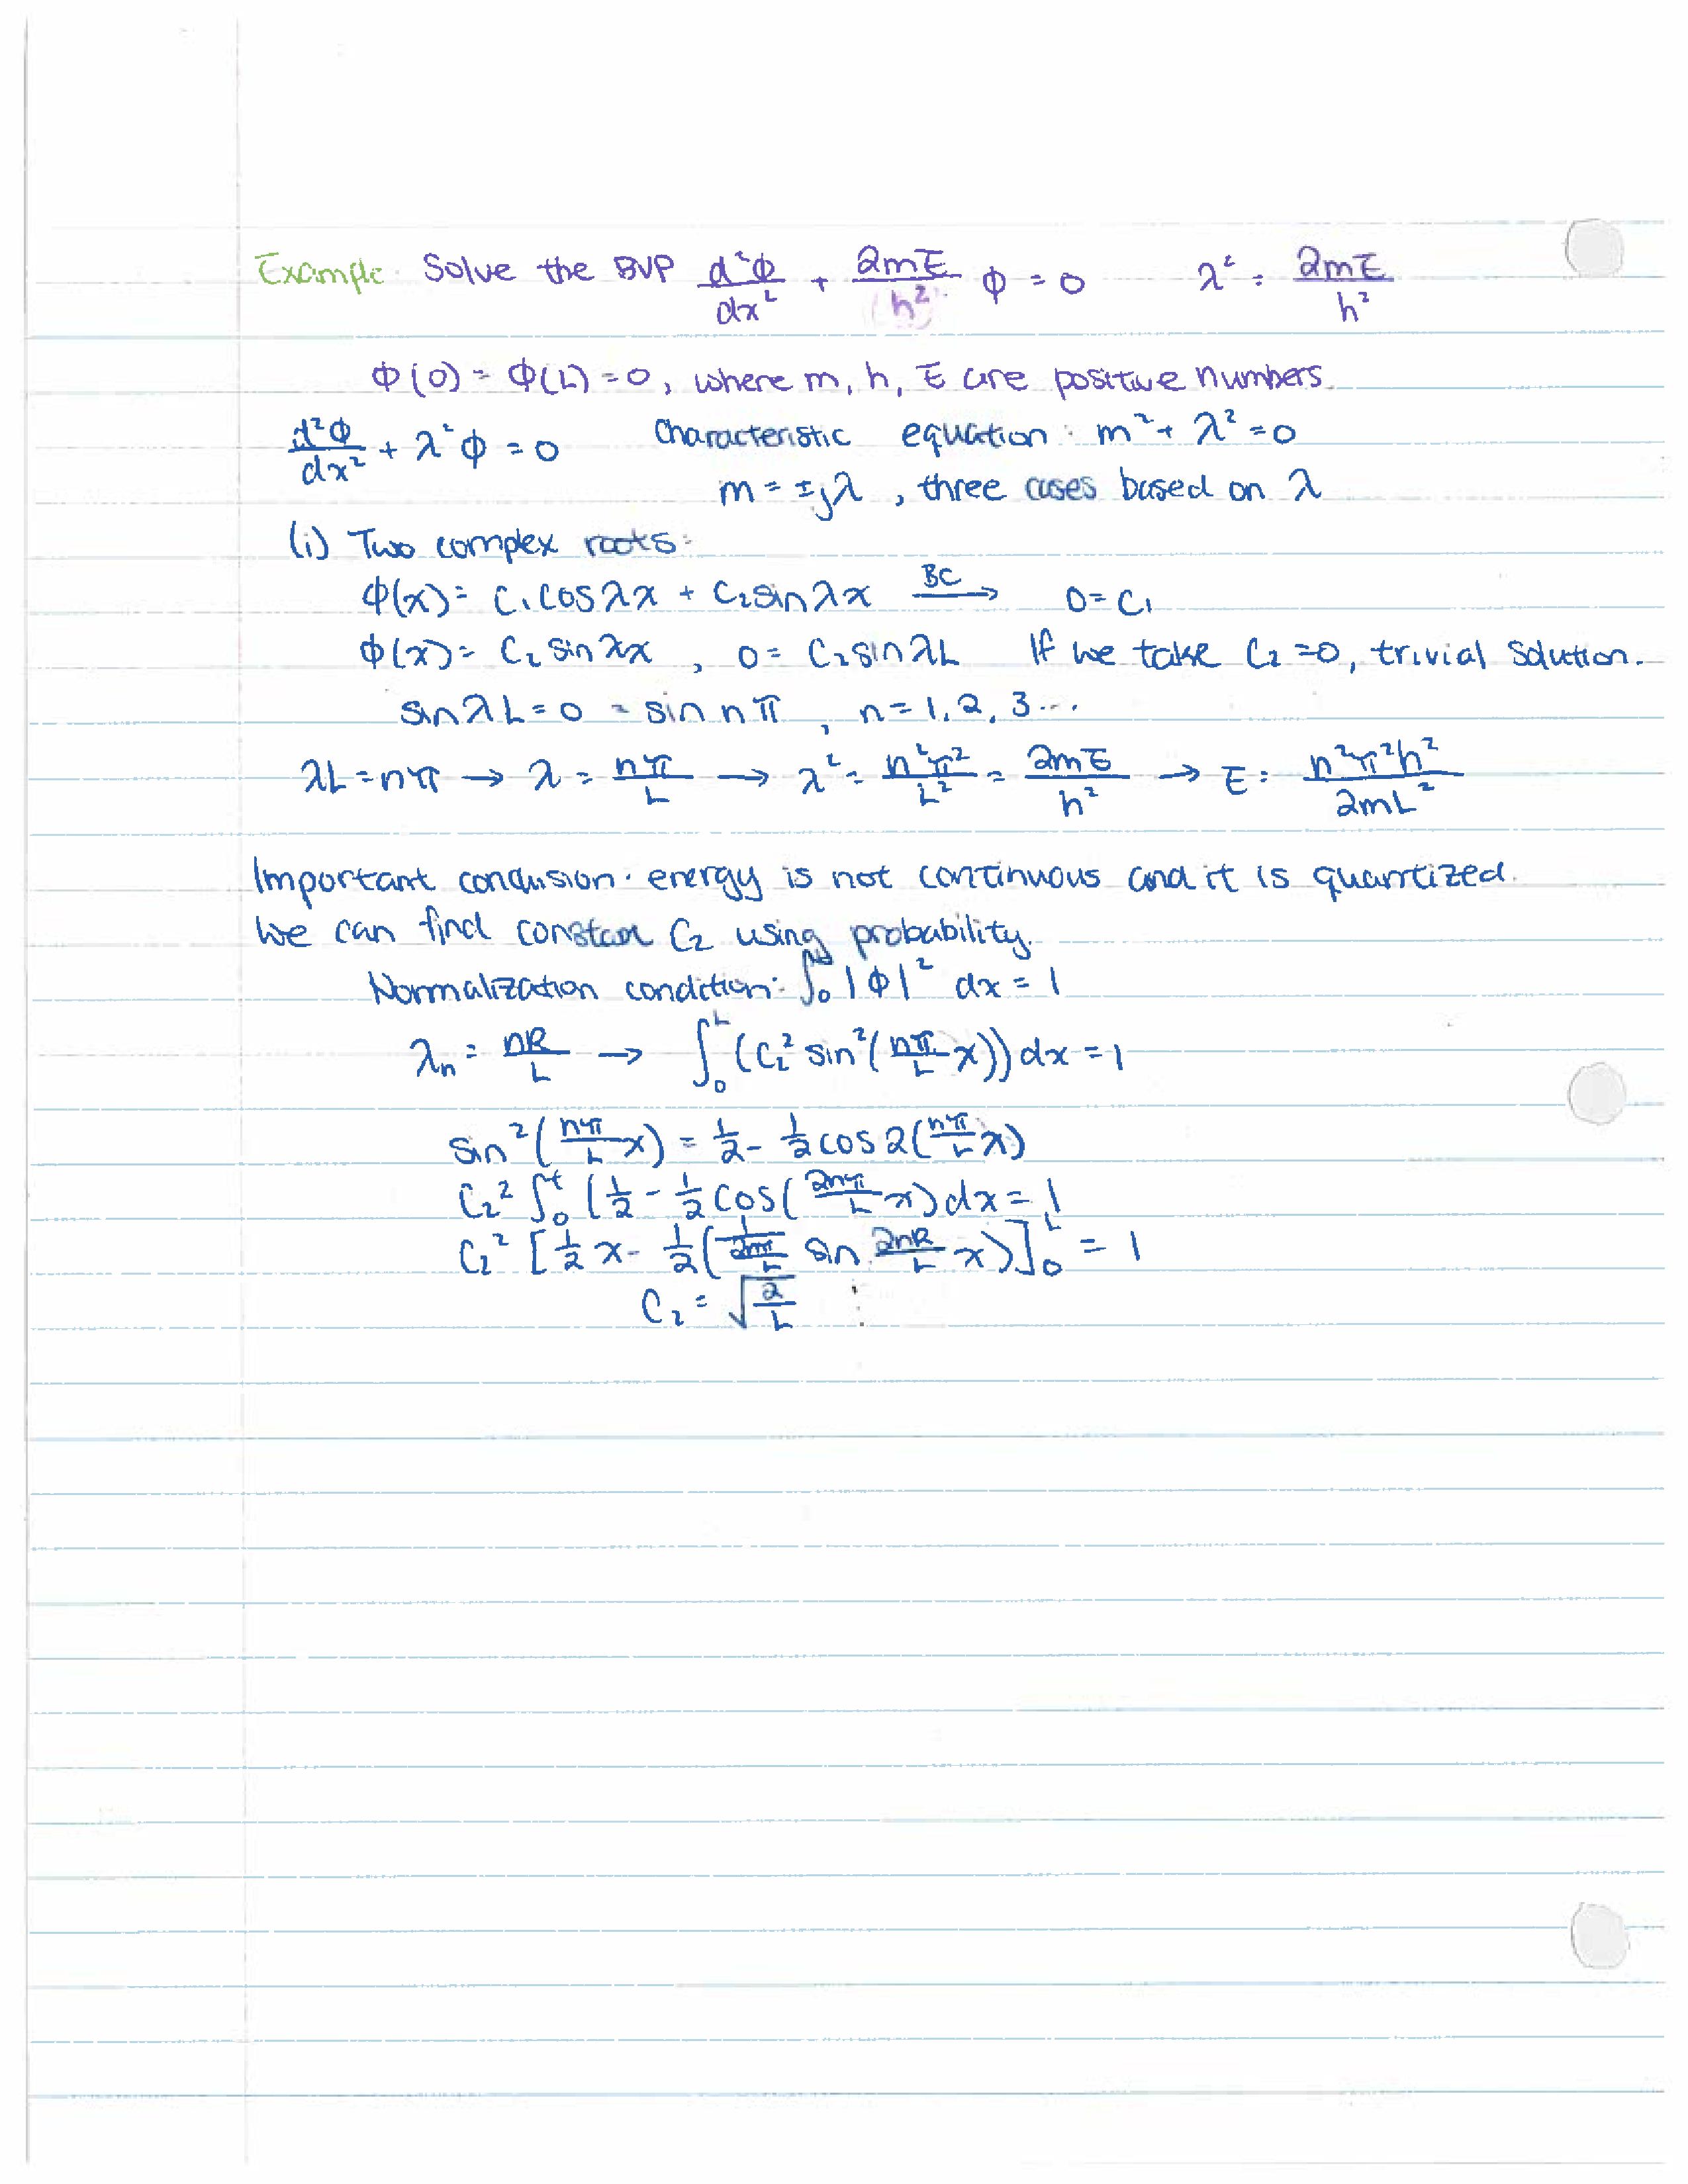 Example: Solve the BVP d²Φ/dx² + 2mE/h² Φ = 0    λ² = 2mE/h²
Φ(0) = Φ(L) = 0, where m, h, E are positive numbers.
d²Φ/dx² + λ²Φ = 0    Characteristic equation: m² + λ² = 0
m = ±jλ, three cases based on λ
(i) Two complex roots:
Φ(x) = C₁cosλx + C₂sinλx —BC→ 0 = C₁
Φ(x) = C₂sinλx, 0 = C₂sinλL If we take C₂ = 0, trivial solution.
sinλL = 0 = sin nπ, n = 1, 2, 3...
λL = nπ → λ = nπ/L → λ² = n²π²/L² = 2mE/h² → E = n²π²h²/2mL²
Important conclusion: energy is not continuous and it is quantized.
We can find constan C₂ using probability.
Normalization condition: ∫₀ |Φ|² dx = 1
λₙ = nπ/L → ∫₀ᴸ (C₂² sin²(nπ/L x)) dx = 1
sin²(nπ/L x) = 1/2 - 1/2 cos 2(nπ/L x)
C₂² ∫₀ᴸ (1/2 - 1/2 cos(2nπ/L x) dx = 1
C₂² [1/2 x - 1/2 (1/(2nπ/L) sin 2nπ/L x)]₀ᴸ = 1
C₂ = √(2/L) ⋮